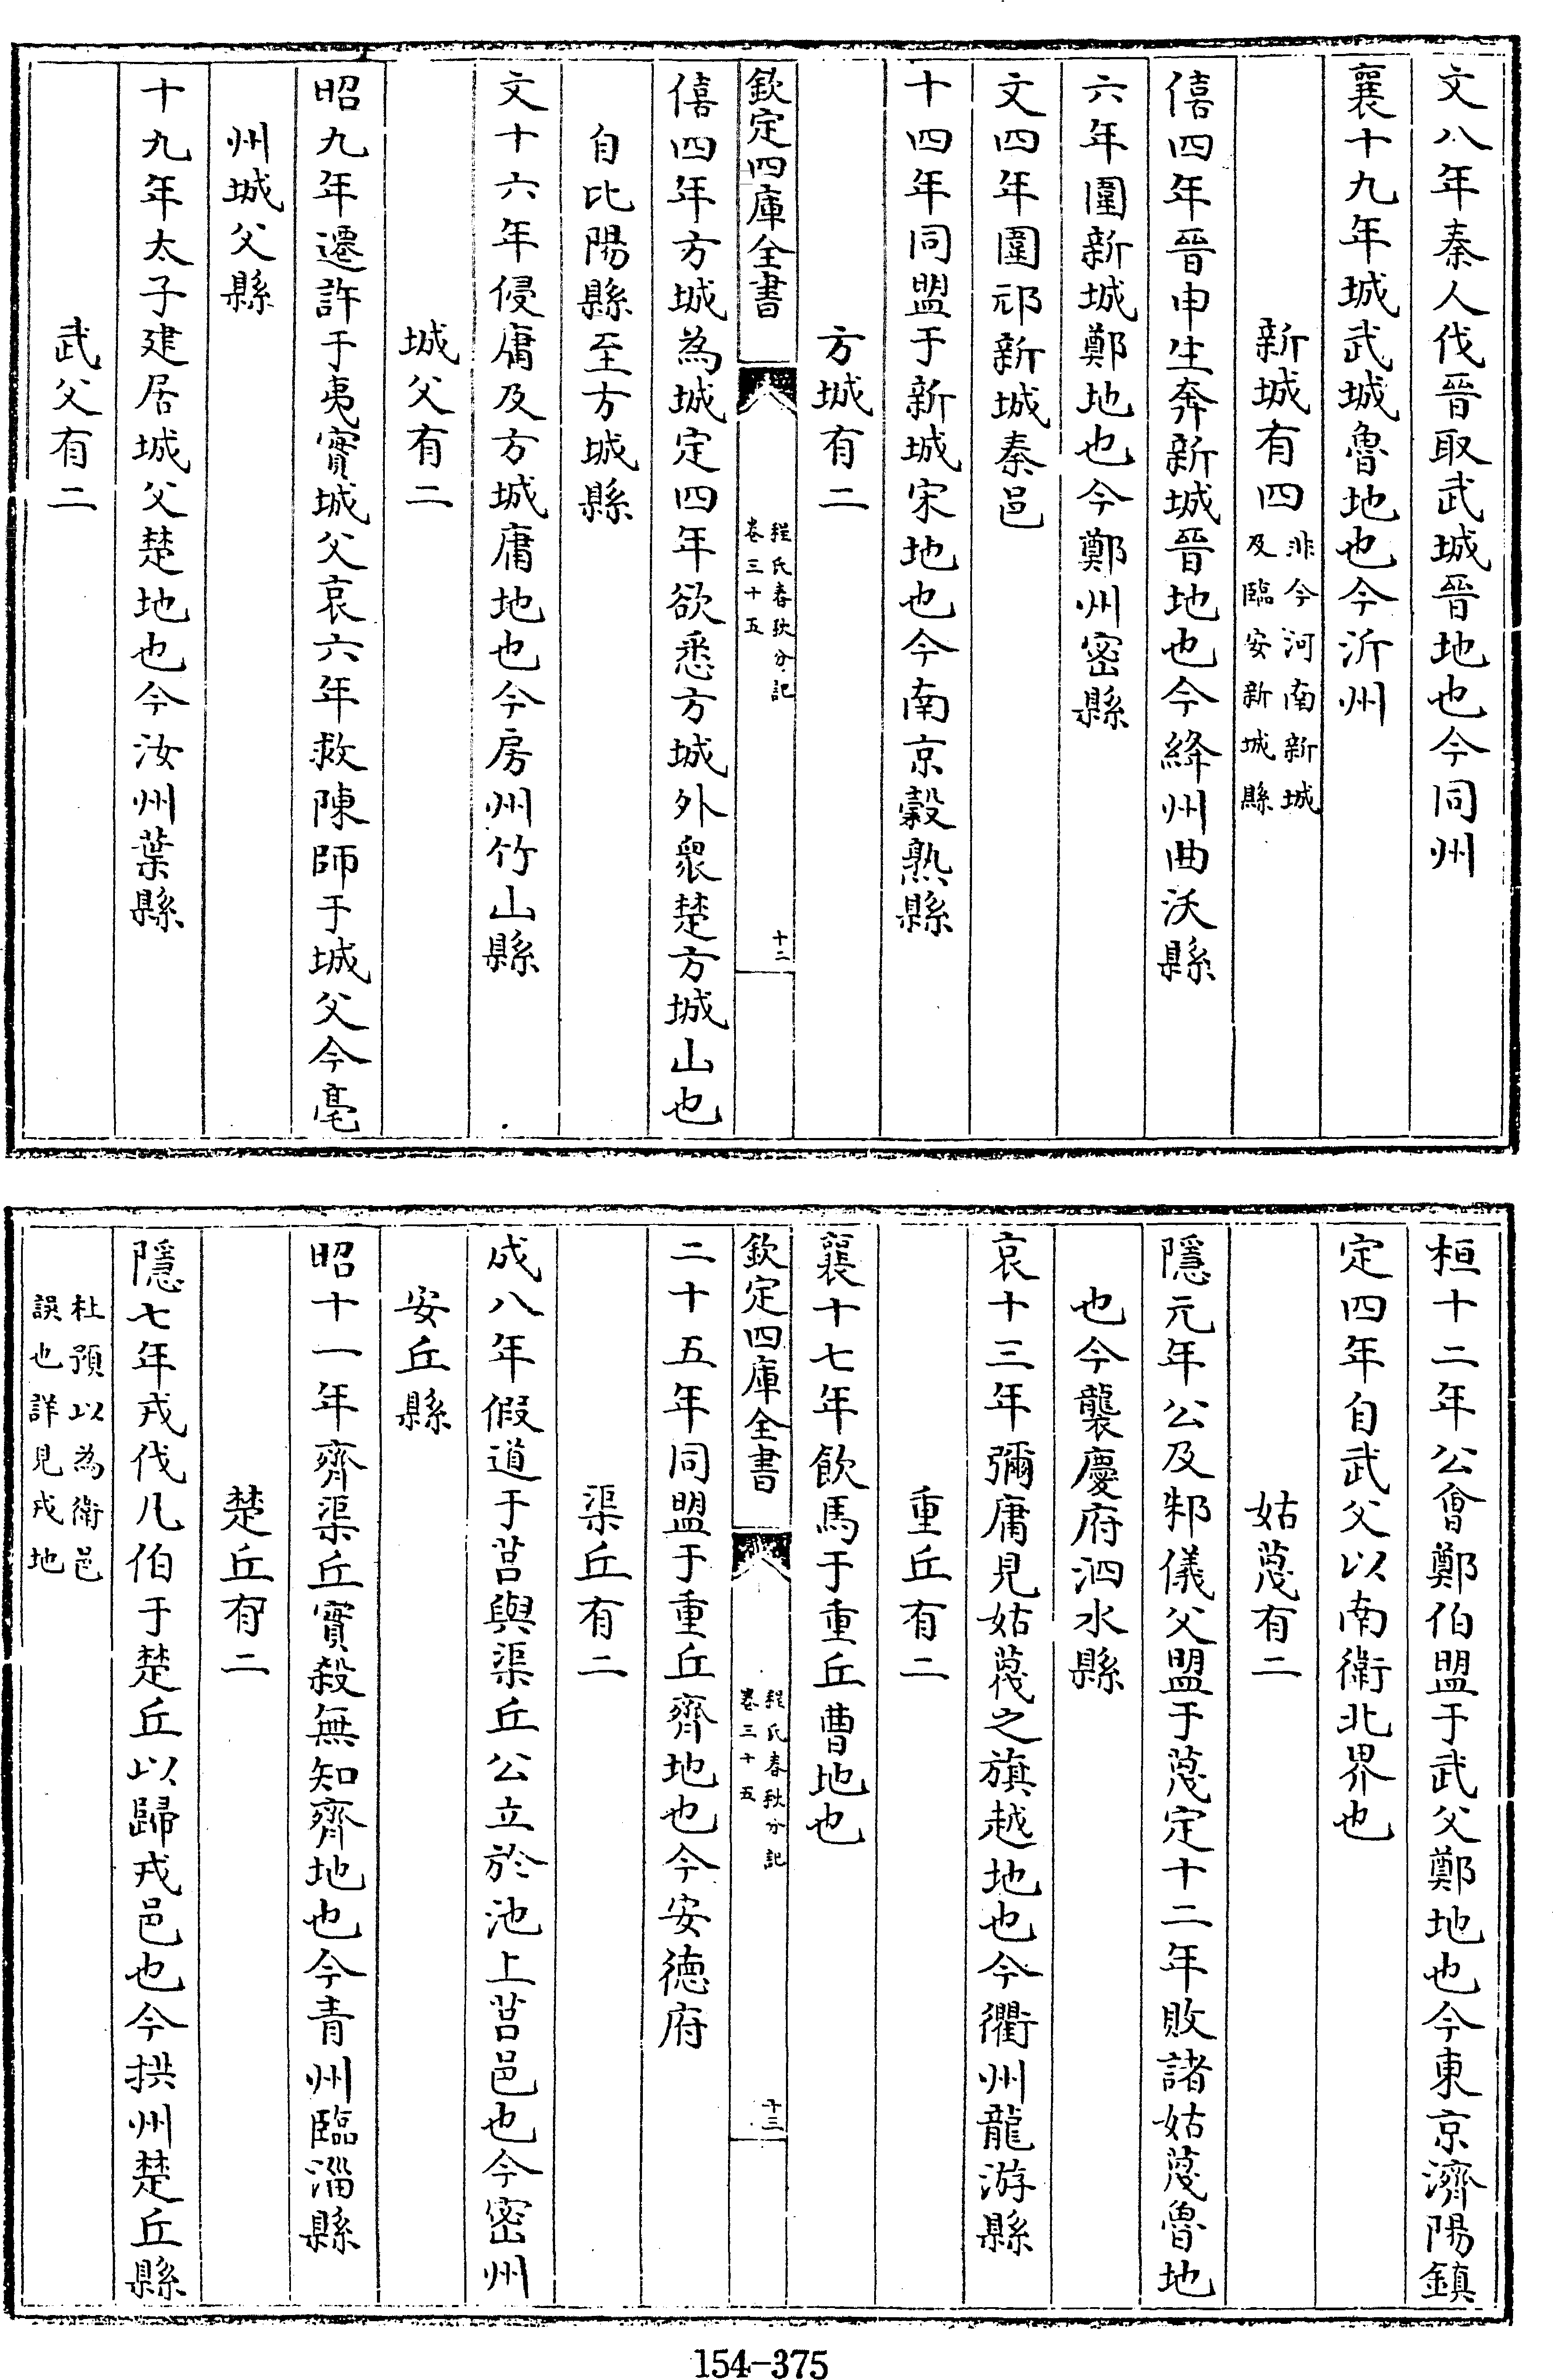 文八年秦人伐晉取武城晉地也今同州
襄十九年城武城魯地也今沂州
新城有四非今河南新城及臨安新城縣
僖四年晉申生奔新城晉地也今絳州曲沃縣
六年圍新城鄭地也今鄭州密縣
文四年圍祁新城秦邑
十四年同盟于新城宋地也今南京穀熟縣
方城有二
欽定四庫全書
程氏春秋分記
卷三十五
十二
僖四年方城為城定四年欲悉方城外衆楚方城山也
自比陽縣至方城縣
文十六年侵庸及方城庸地也今房州竹山縣
城父有二
昭九年遷許于夷實城父哀六年救陳師于城父今亳
州城父縣
十九年太子建居城父楚地也今汝州葉縣
武父有二
桓十二年公會鄭伯盟于武父鄭地也今東京濟陽鎮
定四年自武父以南衛北界也
姑蔑有二
隱元年公及邾儀父盟于蔑定十二年敗諸姑蔑魯地
也今襲慶府泗水縣
哀十三年彌庸見姑蔑之旗越地也今衢州龍游縣
重丘有二
襄十七年飲馬于重丘曹地也
欽定四庫全書
程氏春秋分記
卷三十五
十三
二十五年同盟于重丘齊地也今安德府
渠丘有二
成八年假道于莒與渠丘公立於池上莒邑也今密州
安丘縣
昭十一年齊渠丘實殺無知齊地也今青州臨淄縣
楚丘有二
隱七年戎伐凡伯于楚丘以歸戎邑也今拱州楚丘縣
杜預以為衛邑
誤也詳見戎地
154-375